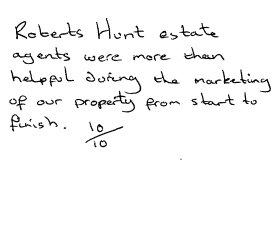 Roberts Hunt estate
agents were more then
helpful during the marketing
of our property from start to
finish. 10/10